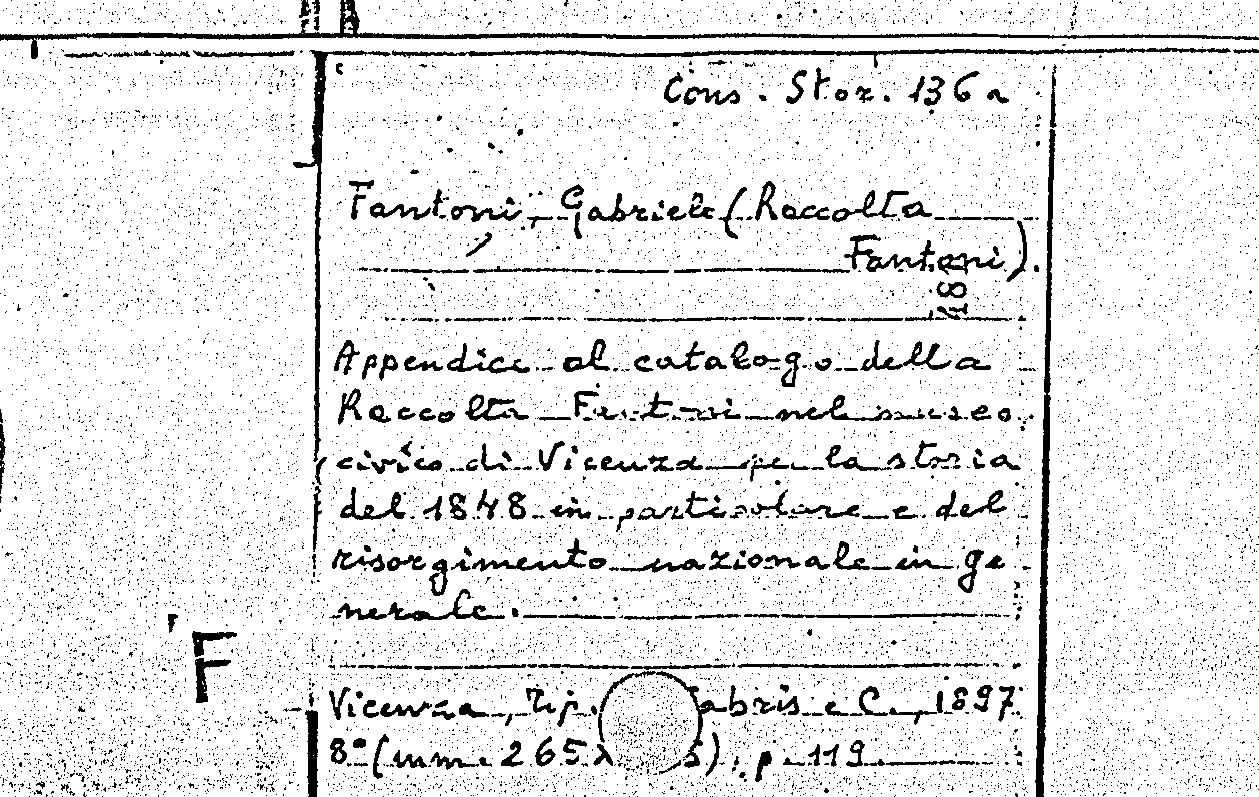 Cons. Stor. 136 a
Fantoni, Gabriele (Raccolta
Fantoni).
Appendice al catalogo della
Raccolta Fantoni nel museo
civico di Vicenza per la storia
del 1848 in particolare e del
risorgimento nazionale in ge
nerale.
F
Vicenza, Tip. abris e C., 1897
8° (mm. 265x 5). p. 119